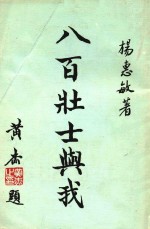 楊惠敏著
八百壯士與我
黃杰題